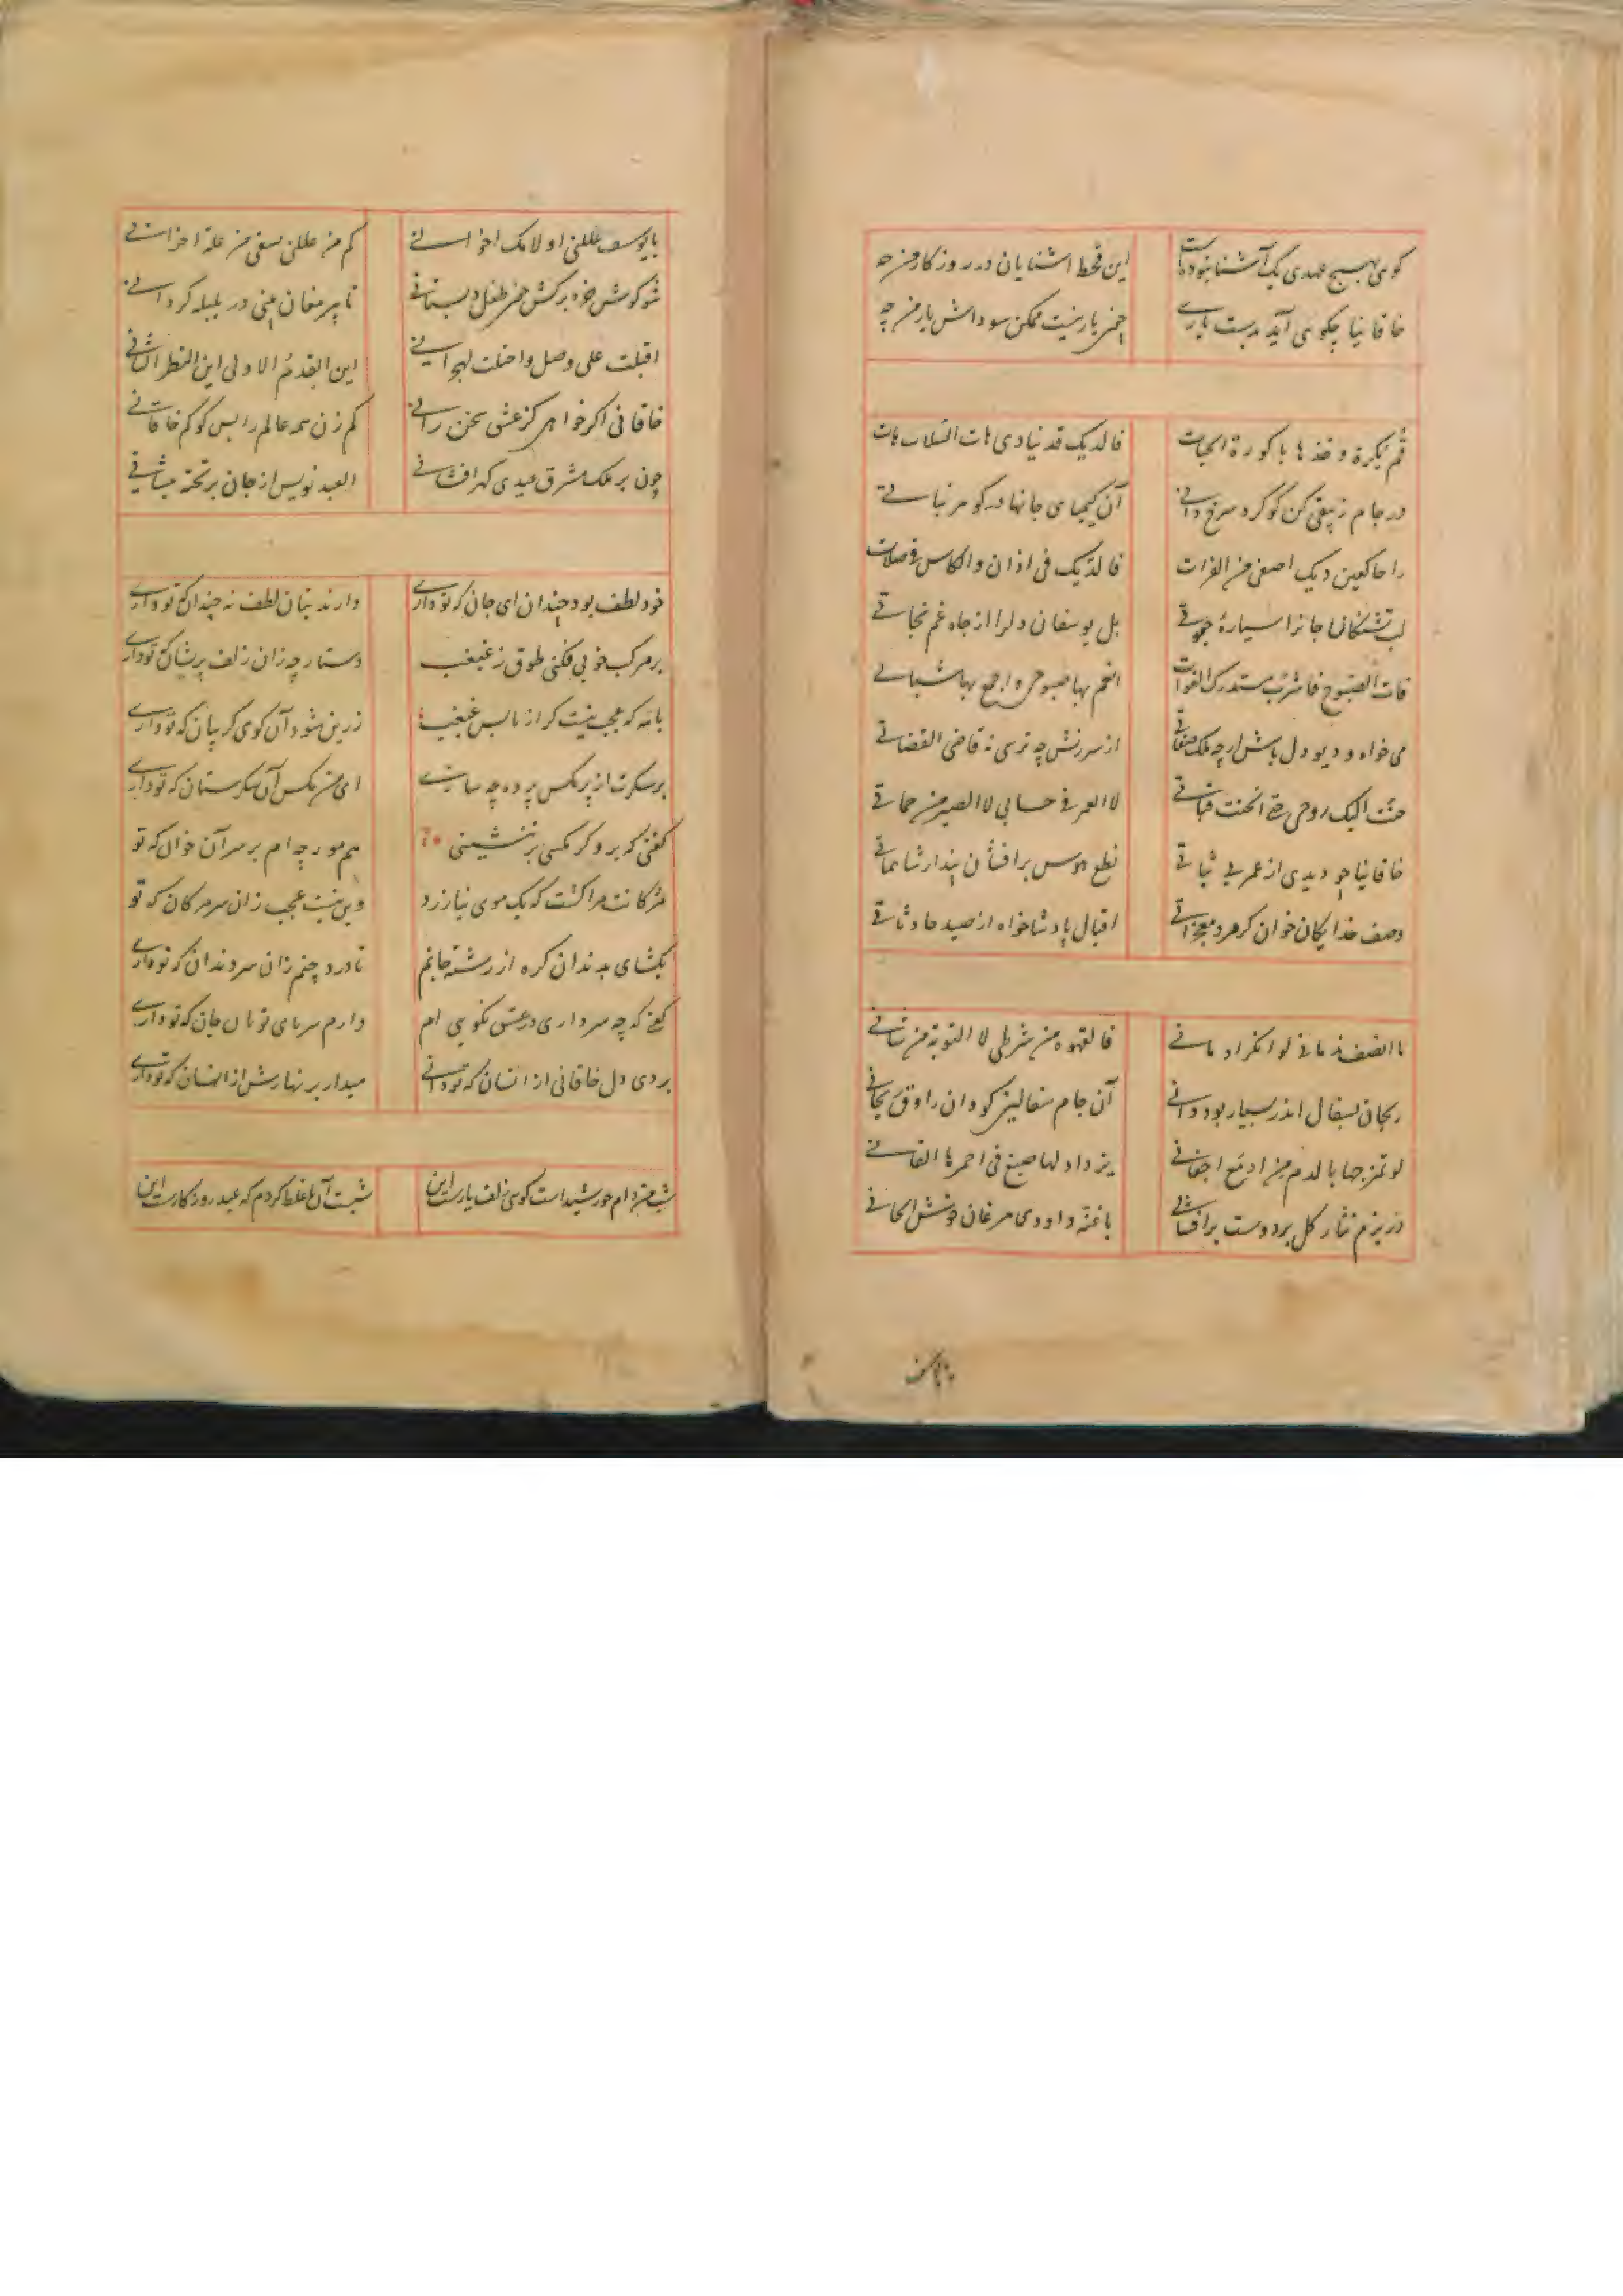 کوی بهیچ عهدی یک آشنا نبودست این قحط آشنایان در روزکار من چه
خاقانیا چکوی آید بدست یاری چون یار نیست ممکن سوداش یار من چه
قم بکرة و خذها باکورة الحیات فالدیک قد ینادی هات الشلاب هات
در جام زیبقی کن کوکرد سرخ دانی آن کیمیای جانها در کوهر نباتی
راحا کعین دیک اصفی من الفرات فالدیک فی اذان والکاس فی صلات
لب تشنکان جانرا سیارهٔ جوقی بل یوسفان دلرا از چاه غم نجاتی
فات الصبوح فاشرب مستدرک الفوات انعم بها صبوحی واجمع بها شباتی
می خواه و دیو دل باش ارچه ملک صفاتی از سرزنش چه ترسی نه قاضی القضاتی
حنت الیک روحی حتی انحنت قناتی لا العمر فی حسابی لا الصبر من حماتی
خاقانیا چو دیدی از عمر بی ثباتی نطع هوس برافشان پندار شاه ماتی
وصف خدایکان خوان کرمرد معجزاتی اقبال پادشا خواه از صید حادثاتی
ما انصف ندمانی لو انکر ادمانی فالقهوه من شرطی لا التوبة من شانی
ریحان بسفال اندر بسیار بود دانی آن جام سفالین کو وان راوق ریحانی
لو تمزجها بالدم من ادمع اجفانی یزداد لها صبغ فی احمرها القانی
در بزم نثار کل بر دوست برافشانی با نغمه داودی مرغان خوش الحانی
یا یوسف عللنی او لامک اخوانی کم من عللن یسقی من غلة احزانی
شو کوش خرد برکش چون طفل دبستانی تا پیر مغان بینی در بلبله کردانی
اقبلت علی وصل واخلت لهجرانی این القدم الاولی این النظر الثانی
خاقانی اکر خواهی کز عشق سخن رانی کم زن همه عالم را پس کو کم خاقانی
چون بر ملک مشرق عیدی کهر افشانی العبد نویس از جان بر تخته پیشانی
خود لطف بود چندان ای جان که تو داری دارند بتان لطف نه چندان که تو داری
بر مرکب خوبی فکنی طوق ز غبغب دستارچه زان زلف پریشان که تو داری
با مه که عجب نیست کر از تابس غبغب زرین شود آن کوی کریبان که تو داری
بر سکرت از پر مکس پرده چه سازی ای من مکس آن سکرستان که تو داری
کفتی که برو کر مکسی بر ننشینی هم مورچه ام بر سر آن خوان که تو
مژکانت مرا کشت که یک موی نیازرد وین نیست عجب زان سر مژکان که تو
بکشای بدندان کره از رشتهٔ جانم تا درد چنم زان سر دندان که تو داری
کفتی که چه سر داری در عشق نکویی ام دارم سر پای تو بان جان که تو داری
بردی دل خاقانی از انسان که تو دانی میدار بزنهارش از انسان که تو داری
شب من دام خورشیدست کویی زلف یارست این شبست آن یا غلط کردم که عید روزکارست این
یا یوسف